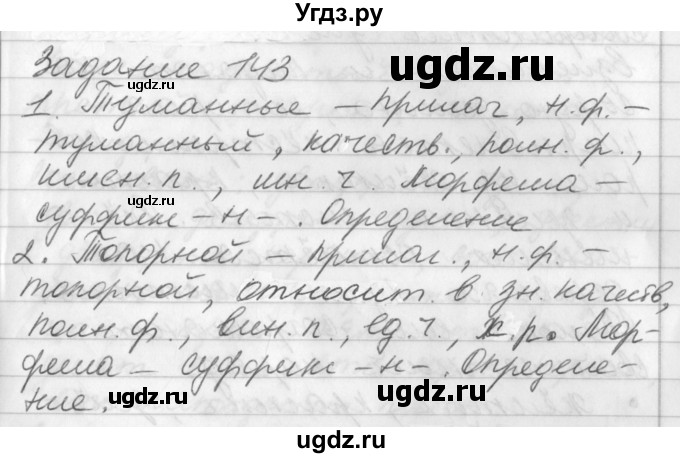 Угдз.ру
Задание 143
ugdz.ru
1. Туманные – прилаг, н.ф. –
ugdz.ru
туманный, качеств., полн. ф.,
имен. п., мн. ч. Морфема –
суффикс – н – . Определение
2. Топорной – прилаг., н.ф. –
топорной, относит. в зн. качеств,
полн. ф., вин. п., ед. ч., ж.р. Мор-
ugdz.ru
фема – суффикс – н – . Определе-
ugdz.ru
ние.
ugdz.ru